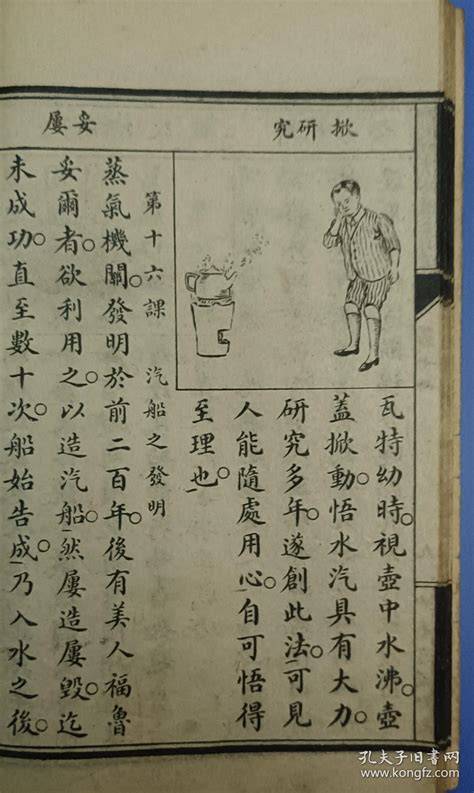 掀研究
妥屢
瓦特幼時。視壺中水沸。壺
蓋掀動。悟水汽具有大力。
研究多年。遂創此法。可見
人能隨處用心。自可悟得
至理也。
第十六課 汽船之發明
蒸氣機關。發明於前二百年。後有美人福魯
妥爾者。欲利用之。以造汽船。然屢造屢毀。迄
未成功。直至數十次。船始告成。乃入水之後。
孔夫子旧书网
www.kongfz.com